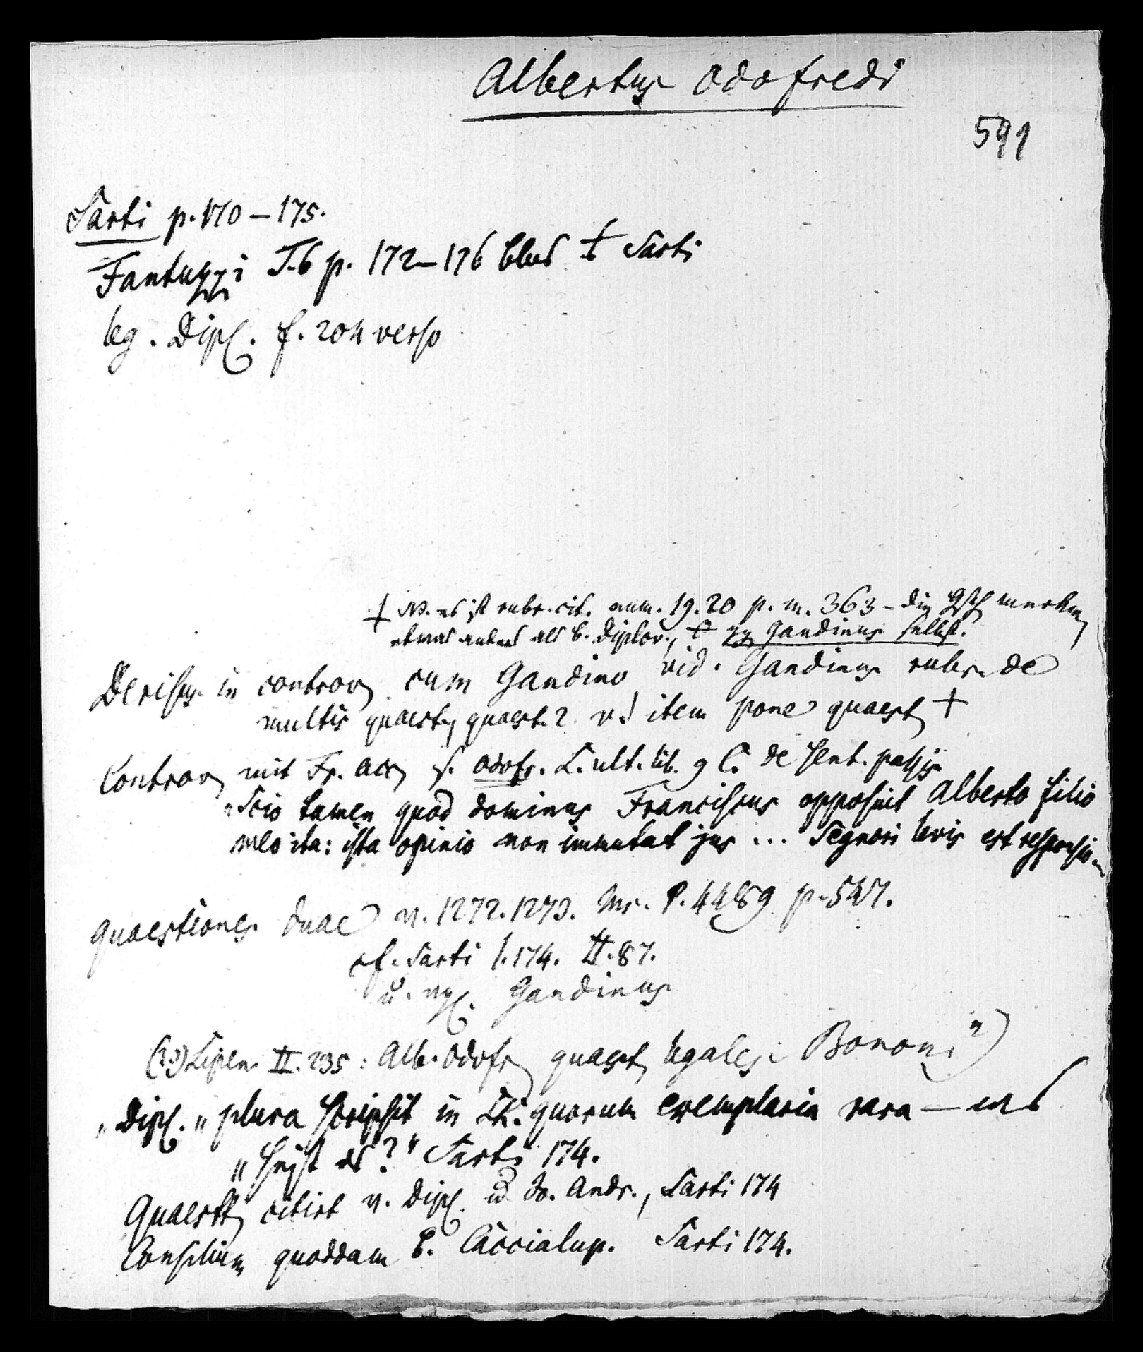 Albertus Odofredi
591
Sarti p. 170 – 175.
Fantuzzi T. 6 p. 172 – 176 blos † Sarti
leg. Dipl. f. 204 verso
† NB. es ist rubr. cit. num. 19. 20 p. m. 363 – die merken
etwas anders als b. Diplov., † Gandinus selbst.
Derisus in controv. cum Gandino vid. Gandinus rubr. de
multis quaest. quaest. 2 v. item pone quaest. †
Controv. mit Fr. Acc. s. Odofr. L. ult. lib. 9 C. de sent. passis
"Scio tamen quod dominus Franciscus opposuit Alberto filio
meo ita: ista opinio non immutat jus ... Segnori levis est responsio
Quaestiones duae v. 1272. 1273. Ms. P. 4489 p. 547.
cf. Sarti I. 174. II. 87.
u. Gandinus
(??) Lipen. II. 235: Alb. Odofr. quaest. legales. Bonon.")
"Dipl. "plura scripsit in quorum exemplaria rara – was
"heist es?" Sarti 174.
Quaestt. citirt v. Dipl. u. Jo. Andr., Sarti 174
Consilium quoddam b. Caccialup. Sarti 174.